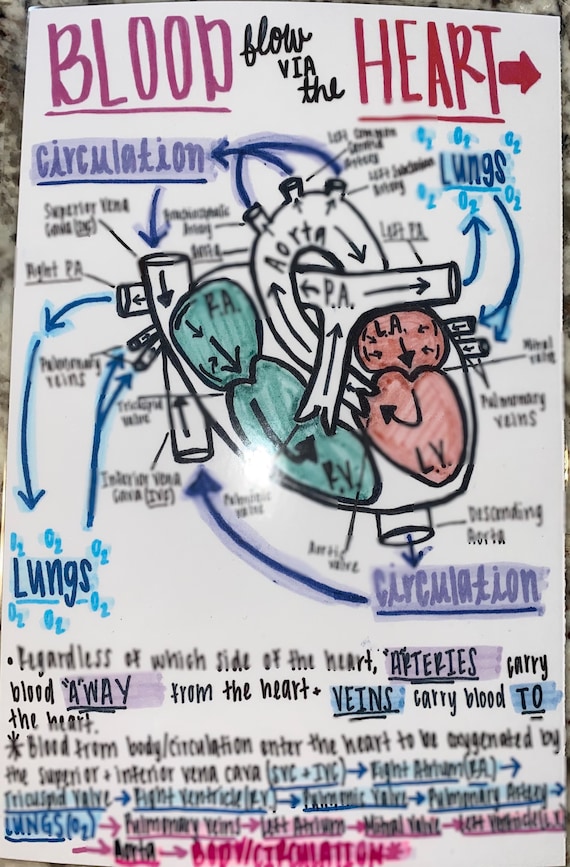 BLOOD flow VIA the HEART
circulation
Left Common Carotid Artery
Left Subclavian Artery
O2 O2 O2
Lungs
O2 O2 O2
Superior Vena Cava (SVC)
Brachiocephalic Artery
Aorta
Aorta
Left PA
Right PA
P.A.
R.A.
L.A.
Mitral valve
Pulmonary veins
Pulmonary veins
Tricuspid valve
Inferior Vena Cava (IVC)
R.V.
L.V.
valve
Aortic valve
Descending Aorta
O2 O2 O2
Lungs
O2 O2 O2
circulation
• Regardless of which side of the heart, "ARTERIES" carry
blood "AWAY" from the heart + VEINS carry blood TO
the heart.
* Blood from body/circulation enter the heart to be oxygenated by
the superior + inferior vena cava (SVC + IVC) → Right Atrium (RA) →
Tricuspid valve → Right ventricle (RV) → Valve → Pulmonary Artery →
LUNGS (O2) → Pulmonary veins → Left Atrium → Mitral valve → Left ventricle
→ Aorta → BODY/CIRCULATION*